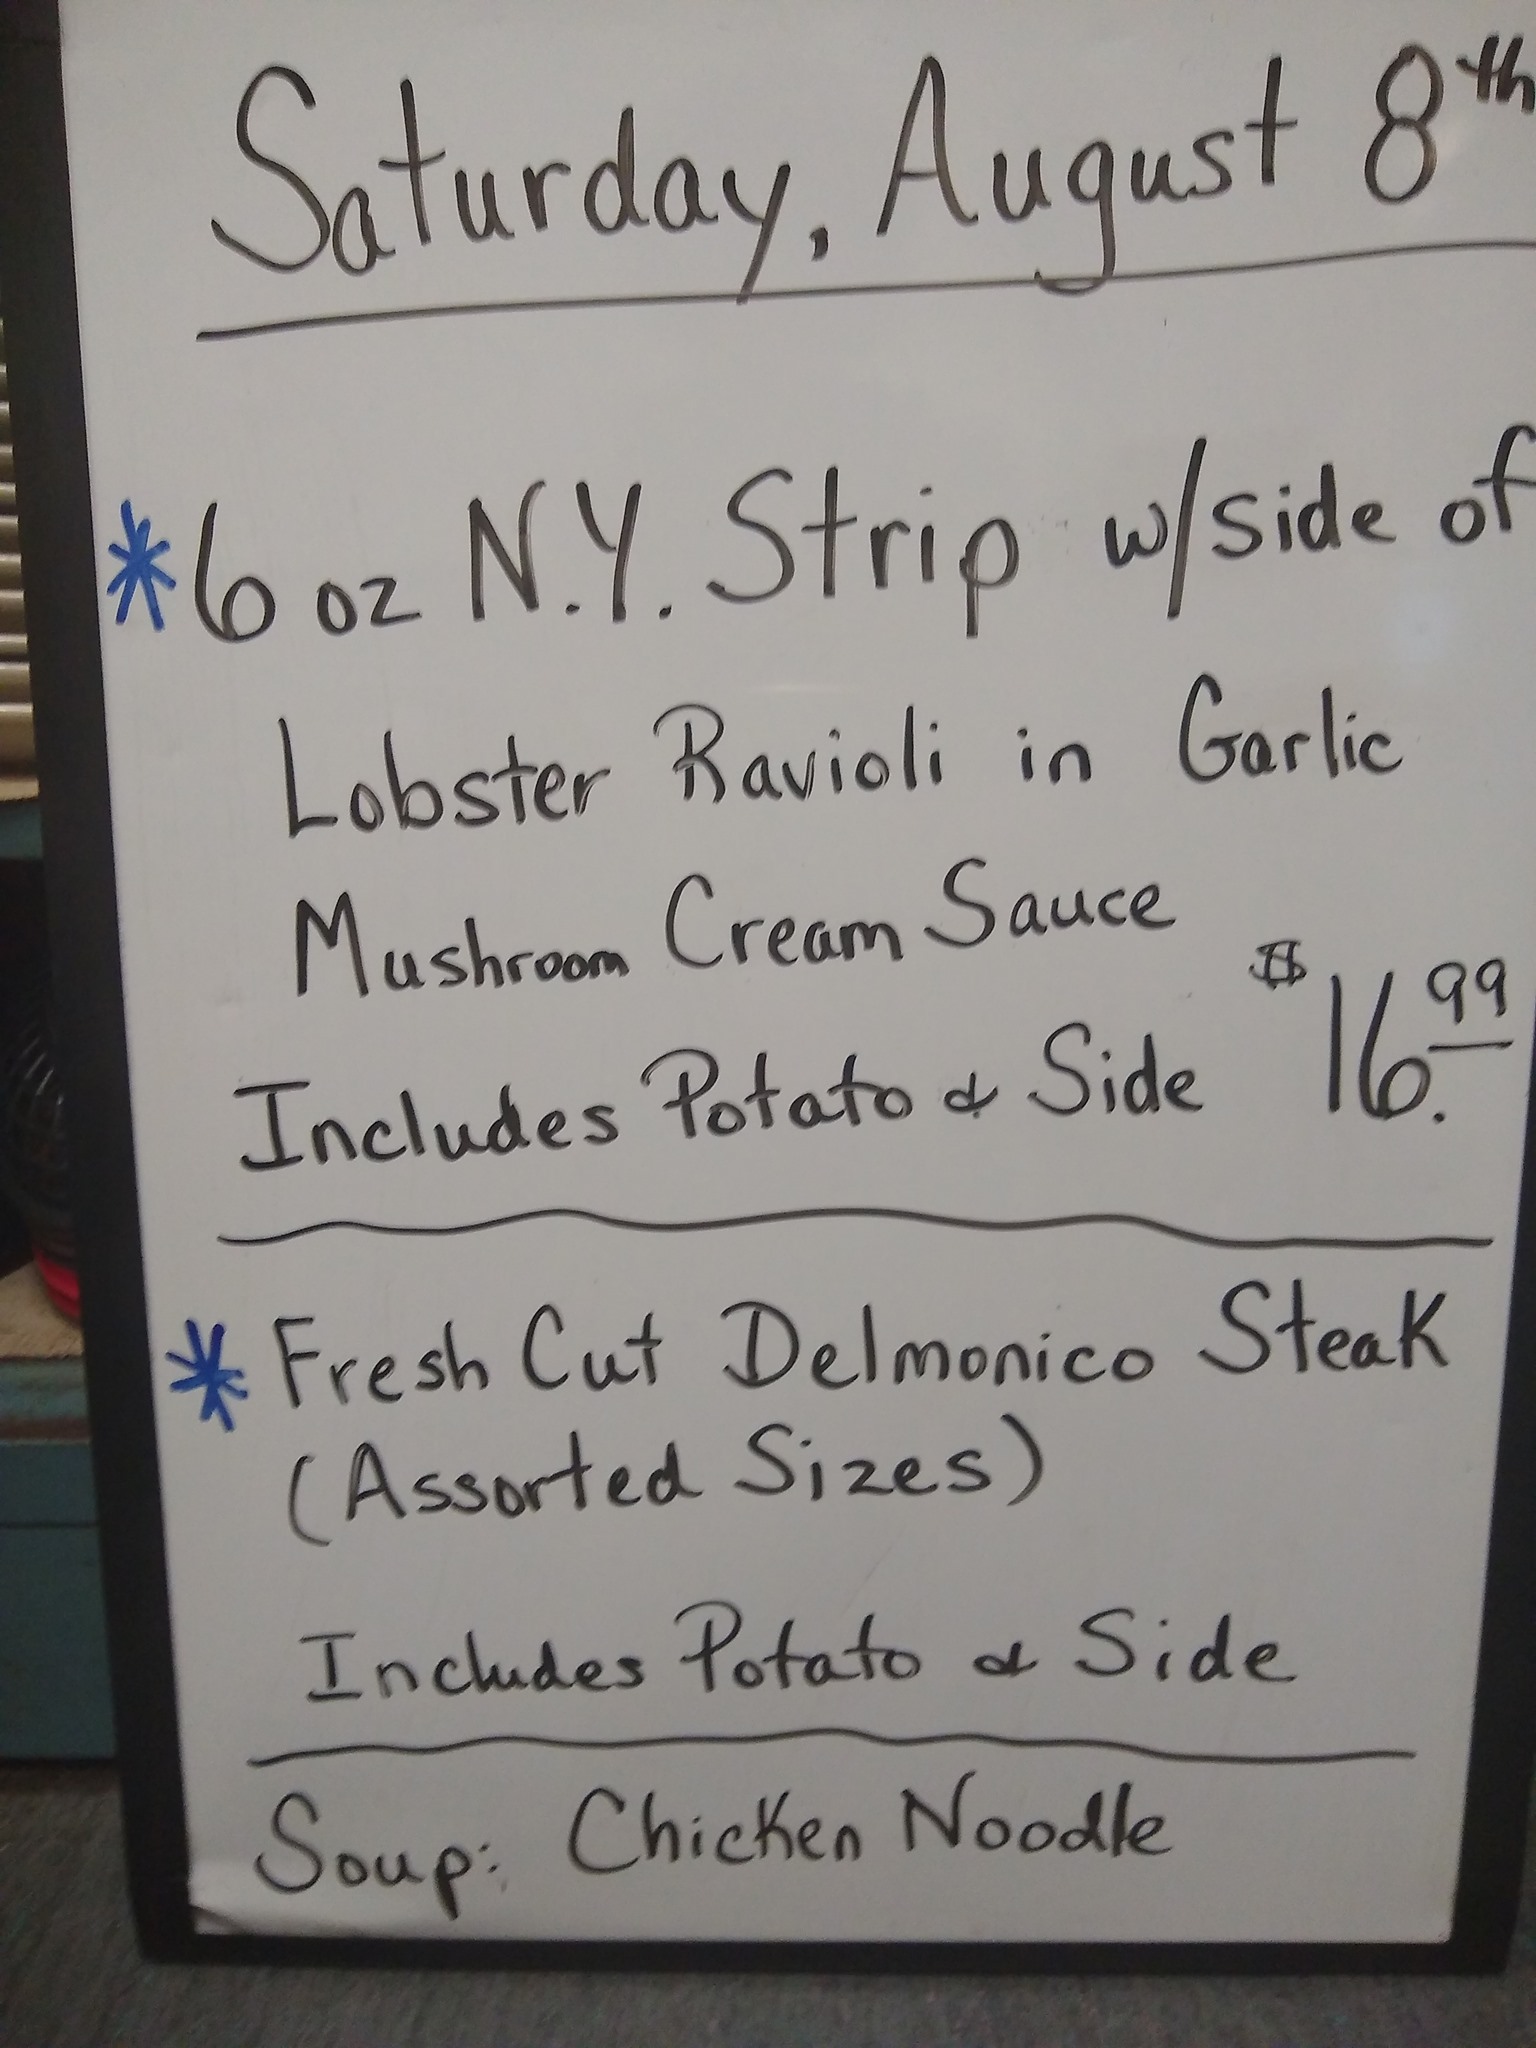 Saturday, August 8th
*6 oz N.Y. Strip w/side of
Lobster Ravioli in Garlic
Mushroom Cream Sauce
Includes Potato & Side $16.99
*Fresh Cut Delmonico Steak
(Assorted Sizes)
Includes Potato & Side
Soup: Chicken Noodle